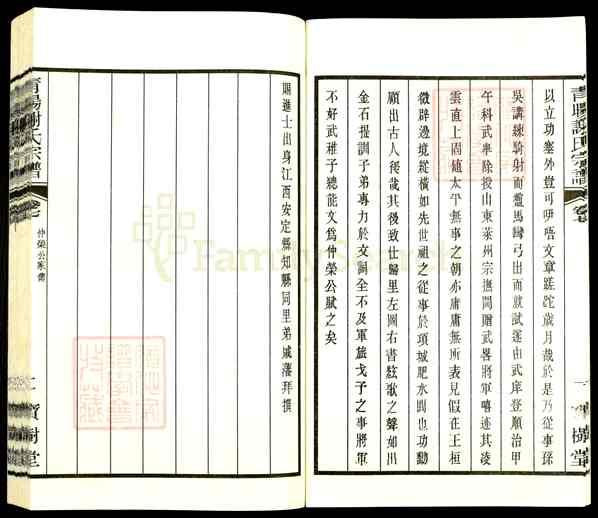 以立功塞外豈可咿唔文章蹉跎歲月哉於是乃從事孫
吳講練騎射而躍馬彎弓出而就試遂由武庠登順治甲
午科武舉除授山東萊州宗撫聞贈武畧將軍嘻述其凌
雲直上固値太平無事之朝亦庸庸無所表見假在王桓
微辟邊境縱橫如先世祖之從事於項城肥水間也功勳
顧出古人後哉其後致仕歸里左圖右書絃歌之聲如出
金石提訓子弟專力於文詞全不及軍旅戈子之事將軍
不好武稚子總能文爲仲榮公賦之矣
賜進士出身江西安定縣知縣同里弟咸藩拜撰
青陽謝氏宗譜
卷七
仲榮公家傳
二
寶樹堂
青陽謝氏宗譜
卷七
一
樹堂
FamilySearch